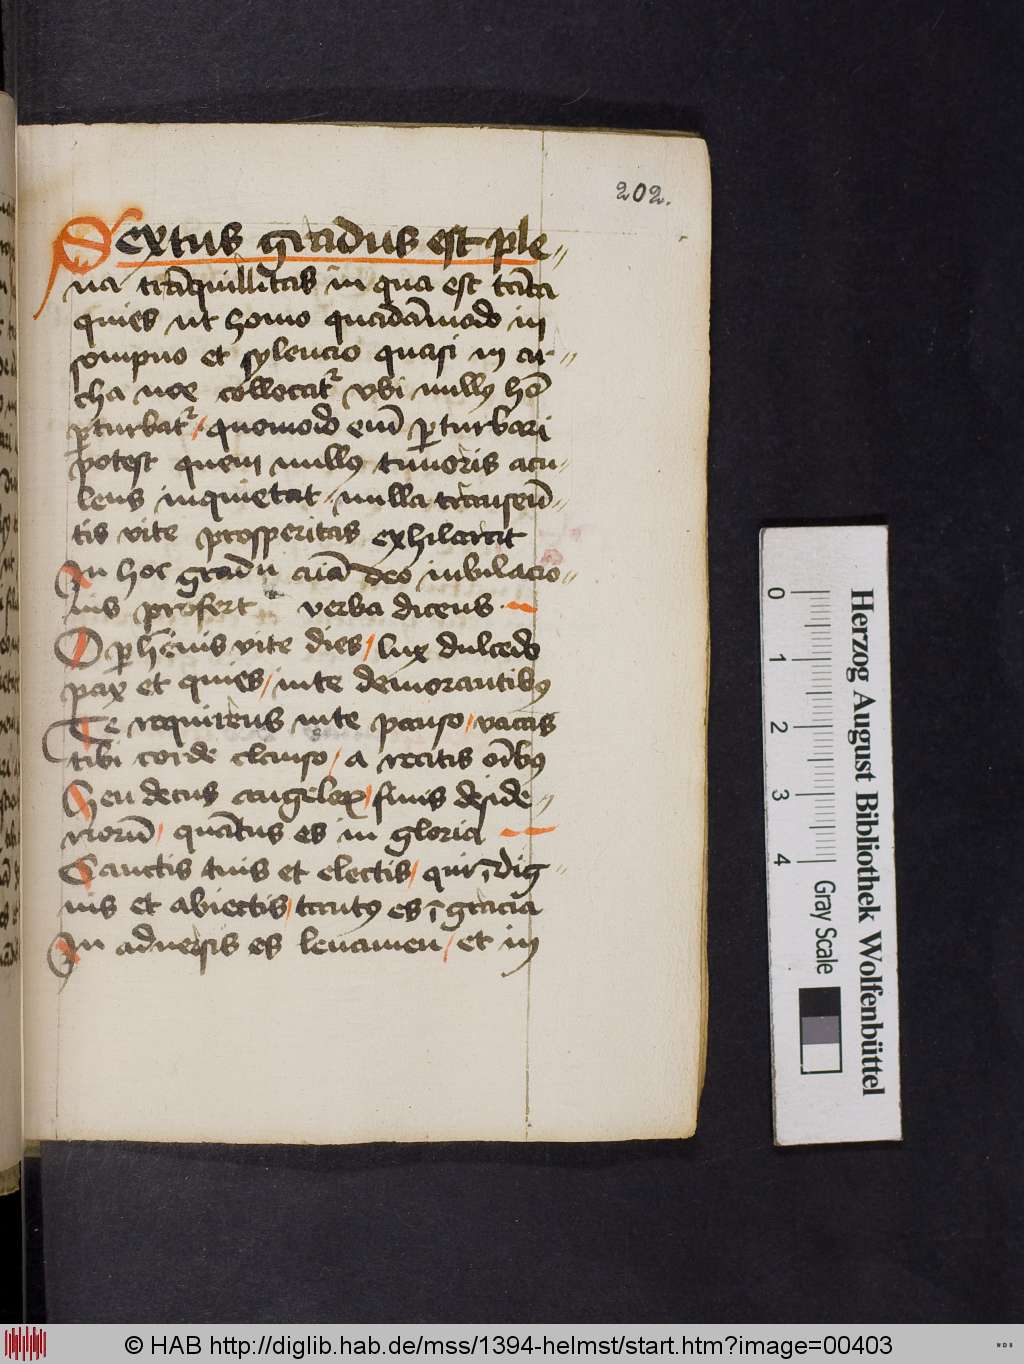 202.
Sextus gradus est ple„
na trāquillitas in qua est tāta
quies ut homo quadāmodo in
sompno et sylencio quasi in ar„
cha noe collocatr vbi nullꝯ hō
ꝑturbatr / quomodo em̄ ꝑturbari
potest quem nullꝯ timoris acu„
leus inquietat nulla transeū„
tis vite prosperitas exhilarat
In hoc gradu aīa deo iubilacio„
nis profert verba dicens
O ꝑhēnis vite dies / lux dulcedo
pax et quies / in te demorantibꝯ
Te requirens in te pauso / vacās
tibi corde clauso / a creatis oībꝯ
Heu decus angeloꝝ / finis deside„
riorū / quātus es in gloria
Sanctis tuis et electis / qui ī dig„
nis et abiectis / tantꝯ es ī gracia
In aduersis es leuamen / et in
Herzog August Bibliothek Wolfenbüttel
0 1 2 3 4 Gray Scale
© HAB http://diglib.hab.de/mss/1394-helmst/start.htm?image=00403